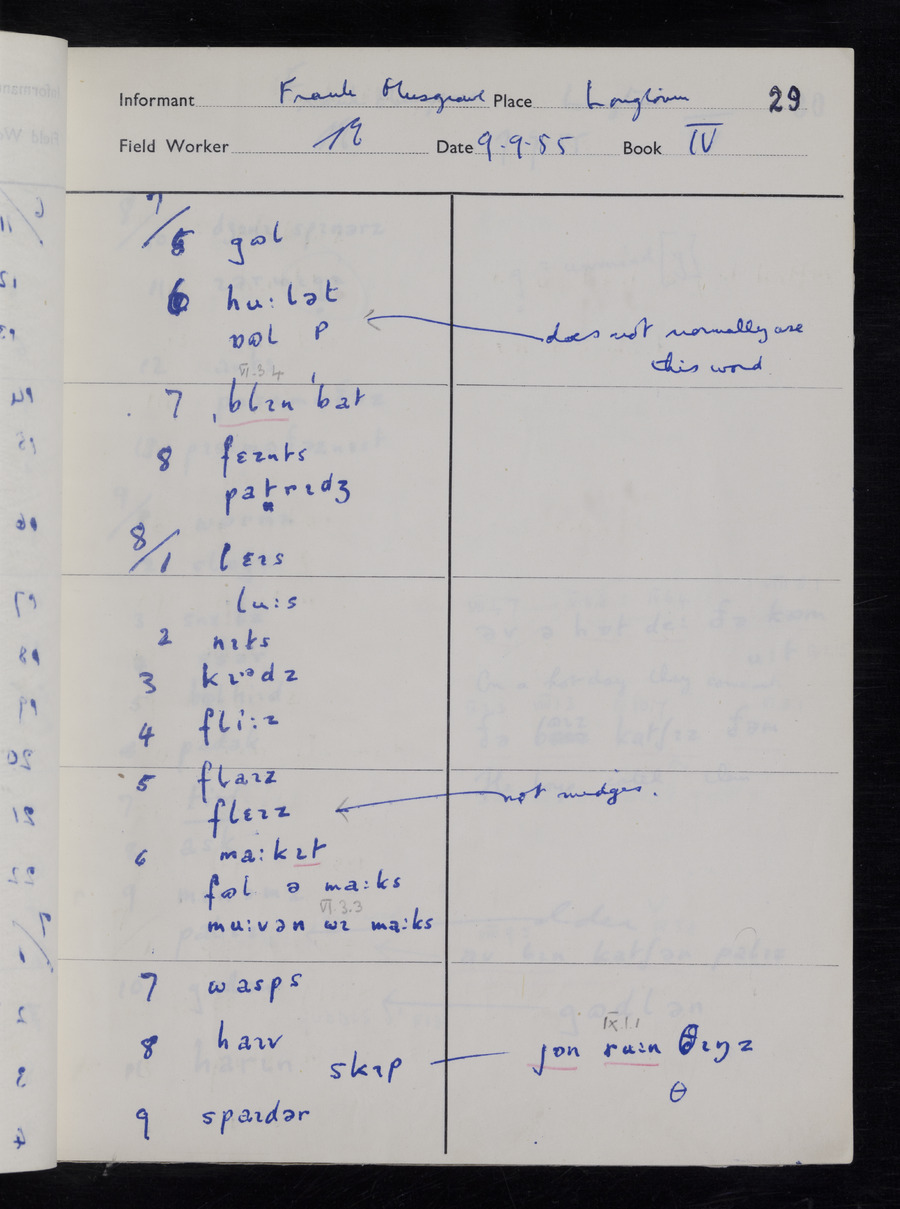 Informant Frank Musgrave Place Longtown 29
Field Worker Date 9-9-55 Book IV
7/5 gɷl
6 hu:lət
ɷɷl P
does not normally use
this word
VI.3.4
7 ˌblɪn ˈbat
8 fɛɪnts
patrɪdʒ
8/1 lɛɪs
lu:s
2 nɪts
3 krᵊdz
4 fli:z
5 flaɪz
flɛɪz
not midges.
6 ma:kɪt
fɷl ə ma:ks
VI.3.3
mu:vən wɪ ma:ks
7 wasps
8 haɪv
skɛp
IX.1.1
jon ruɪn θɪŋz
θ
9 spaɪdər